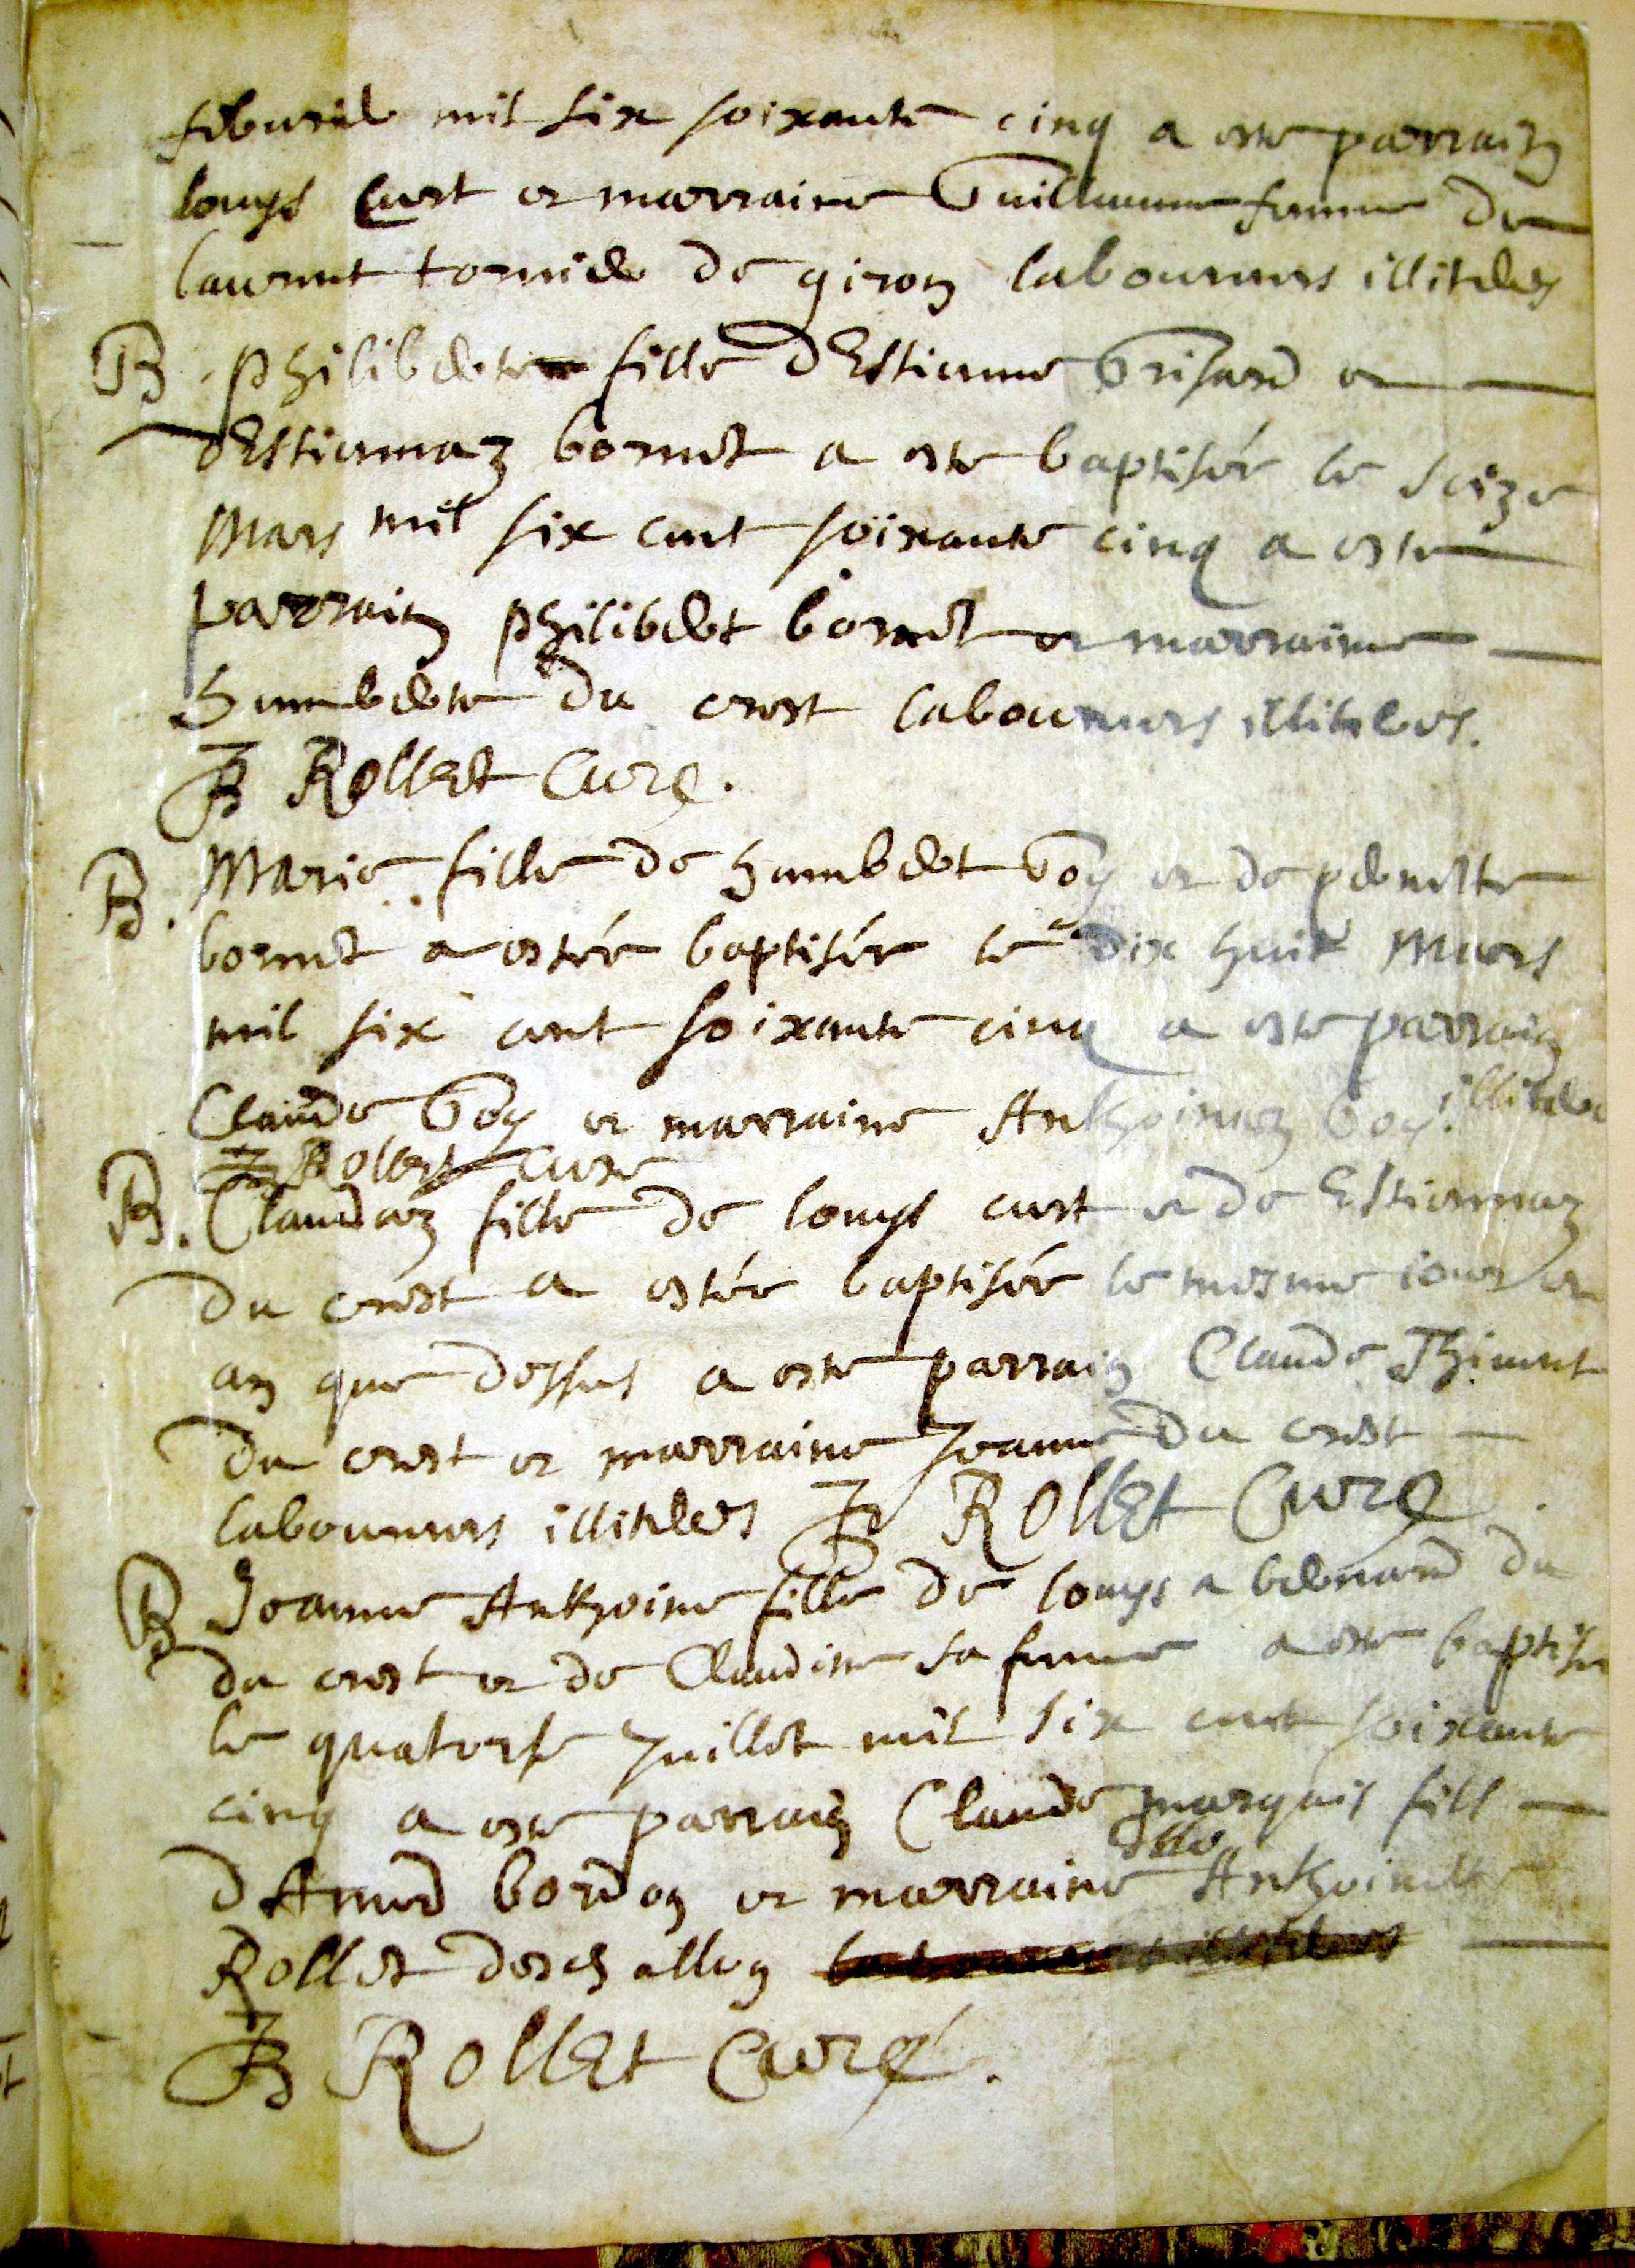 febvrier mil six soixante cinq a este parrain
louys curt et marraine Guillauma femme de
laurent tornier de giron laboureurs illiteres
B. philiberte fille d'Estienne Grisard et
d'Estiennaz bornet a este baptisée le seize
Mars mil six cent soixante cinq a este
parrain philibert bornet et marraine
humberte du crest laboureurs illiteres.
JB Rollet Curé.
B. Marie fille de humbert Goy et de pernette
bornet a estée baptisée le dix huit Mars
mil six cent soixante cinq a este parrain
Claude Goy et marraine Anthoinaz Goy. illiteres
JB Rollet Cure
B. Claudaz fille de louys curt et de Estiennaz
du crest a estée baptisée le mesme iour et
an que dessus a este parrain Claude Thienent
du crest et marraine Jeanne du crest
laboureurs illiteres JB Rollet Curé
B Jeanne Anthoine fille de louys a bernard du
du crest et de Claudine sa femme a este baptisee
le quatorse Juillet mil six cent soixante
cinq a este parrain Claude marquis fils
d'Aymé bordon et marraine Anthoinette
Rollet deschallon
JB Rollet Curé.